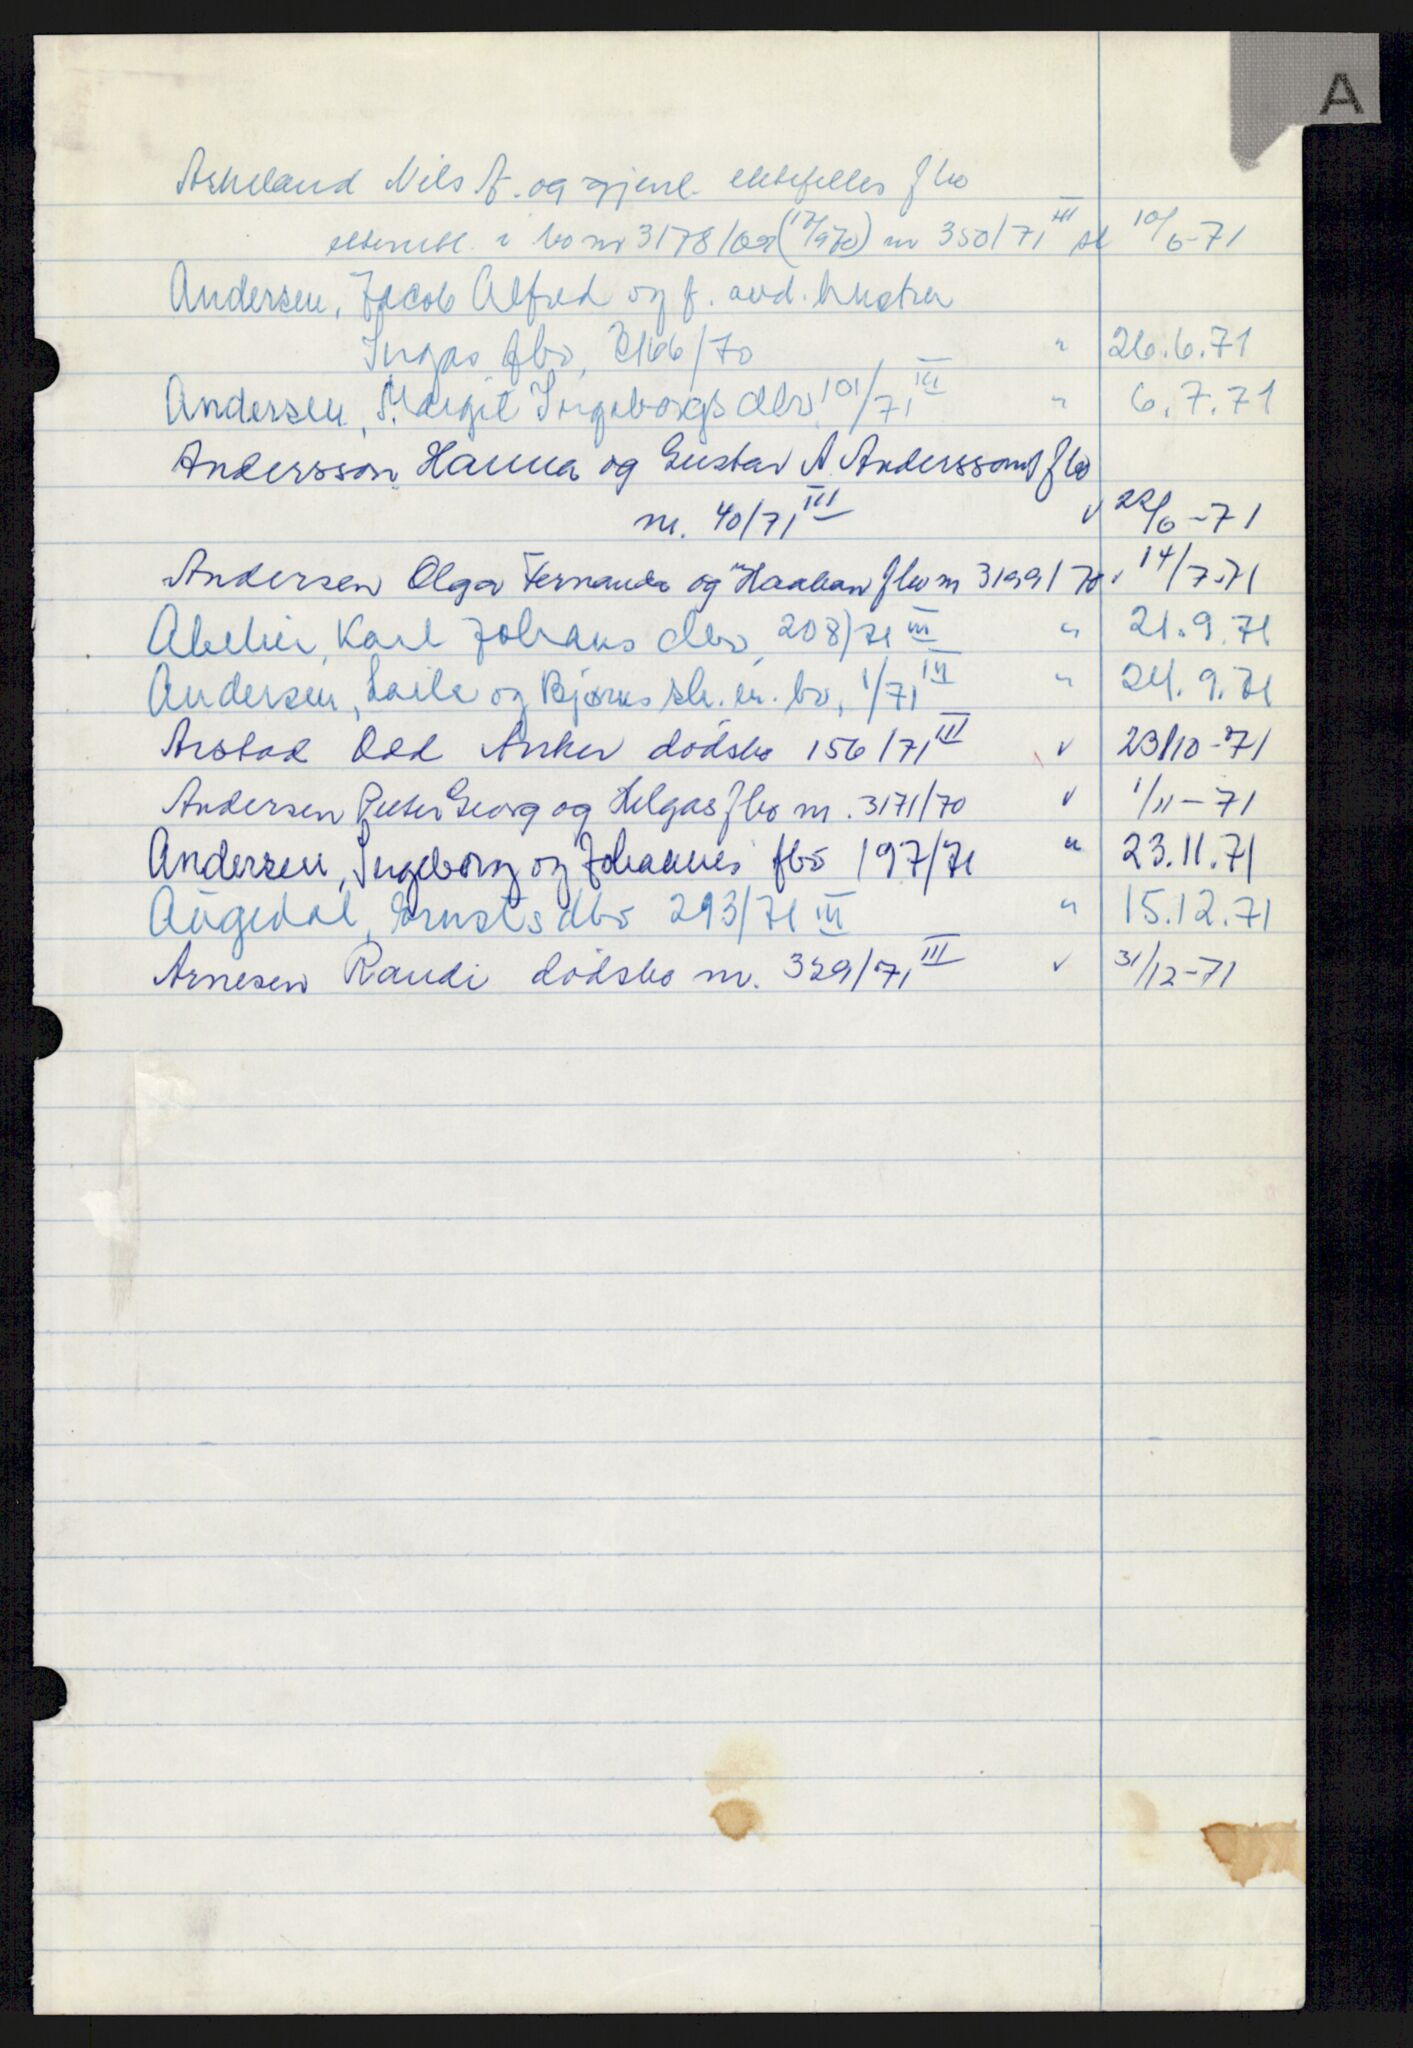 A
Askeland Nils A. og gjenl. ektefelles fbo
i bo nr 3178/69 (17/9 70) nr 350/71 III sl 10/6-71
Andersen, Jacob Alfred og f. avd. hustru
Ingas fbo, 3166/70 " 26.6.71
Andersen, Margit Ingeborgs dbo 101/71 III " 6.7.71
Andersson Hanna og Gustav A. Anderssons fbo
nr. 40/71 III v 22/6-71
Andersen Olga Fernanda og Haakon fbo nr 3199/70 v 14/7-71
Karl Johans dbo, 208/71 III " 21.9.71
Andersen, Laila og Bjørns sk. m. bo, 1/71 III " 24.9.71
Arstad Odd Anker dødsbo 156/71 III v 23/10-71
Andersen Peter Georg og Helgas fbo nr. 3171/70 v 1/11-71
Andersen, Ingeborg og Johannes fbo 197/71 " 23.11.71
Augedal, Ernsts dbo 293/71 III " 15.12.71
Arnesen Randi dødsbo nr. 329/71 III v 31/12-71